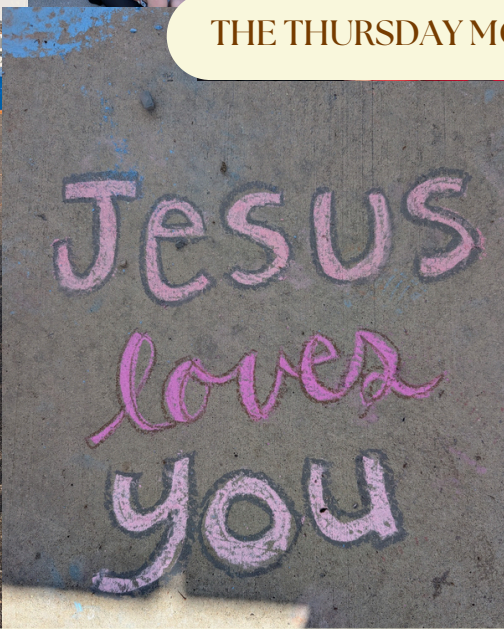 THE THURSDAY
Jesus
loves
you